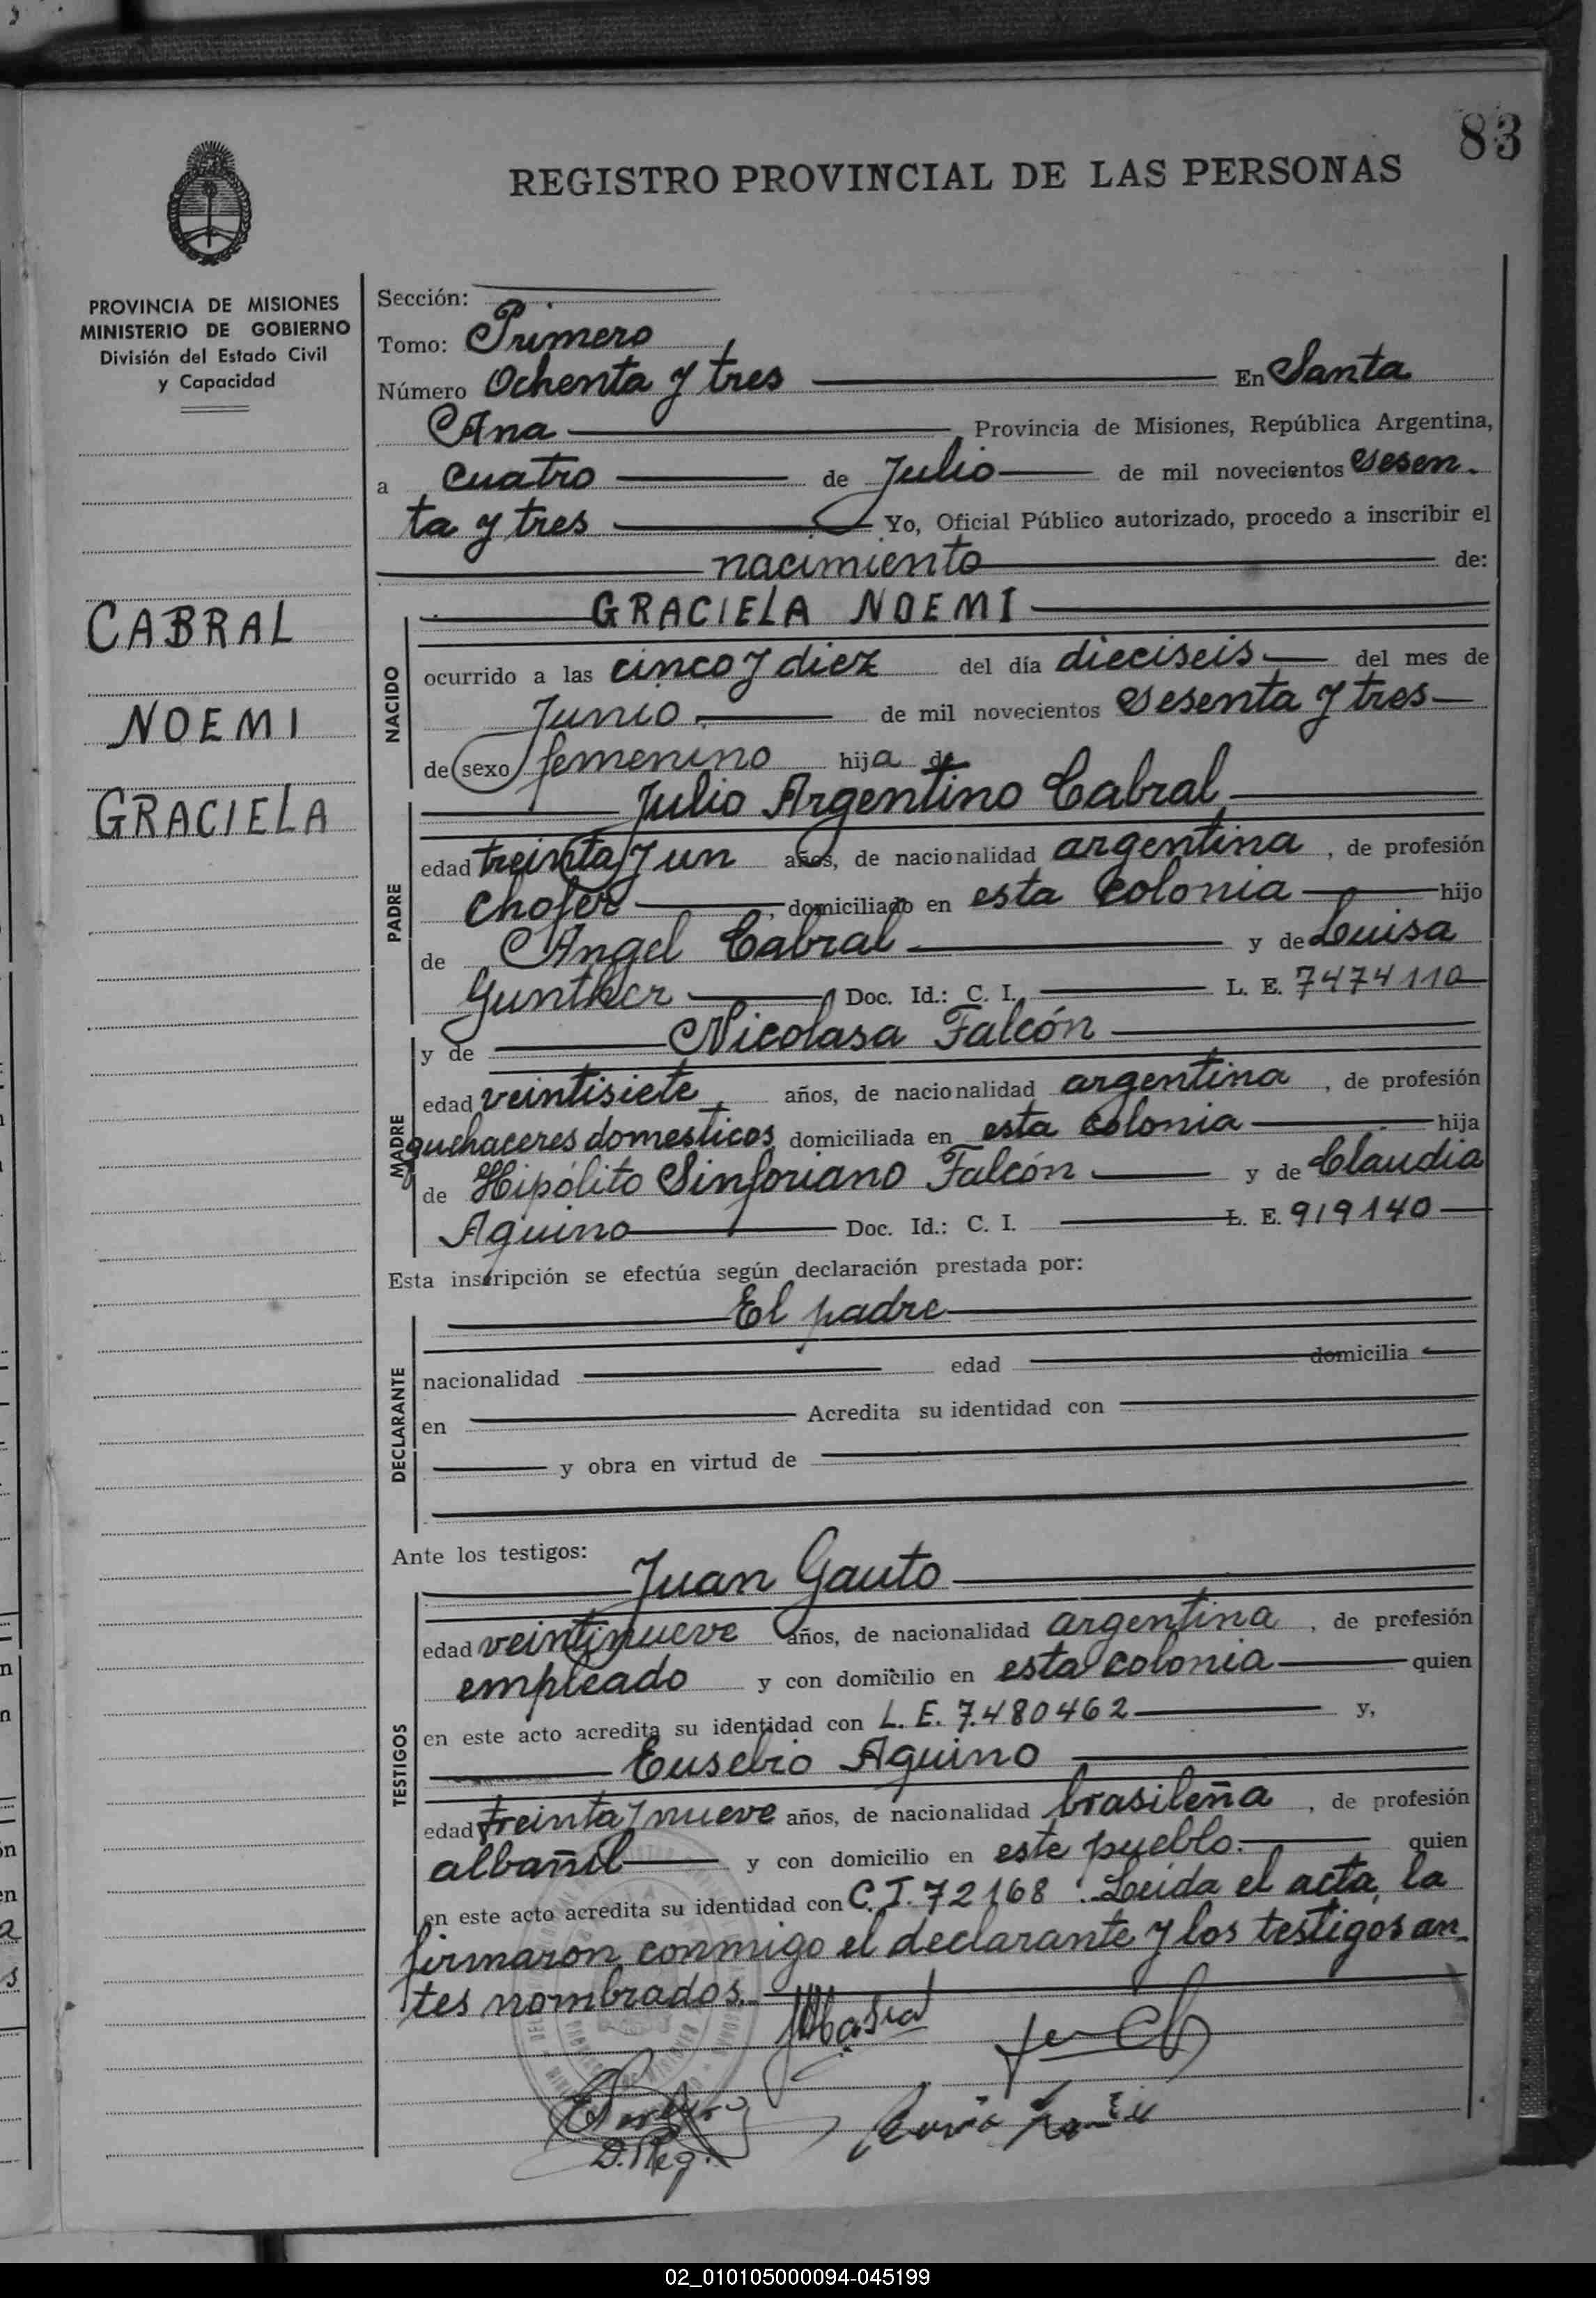 83
REGISTRO PROVINCIAL DE LAS PERSONAS
PROVINCIA DE MISIONES
MINISTERIO DE GOBIERNO
División del Estado Civil
y Capacidad
CABRAL
NOEMI
GRACIELA
Sección:
Tomo: Primero
Número Ochenta y tres En Santa
Ana Provincia de Misiones, República Argentina,
a cuatro de Julio de mil novecientos sesen-
ta y tres Yo, Oficial Público autorizado, procedo a inscribir el
nacimiento de:
NACIDO
GRACIELA NOEMI
ocurrido a las cinco y diez del día dieciseis del mes de
Junio de mil novecientos sesenta y tres
de sexo femenino hija de
PADRE
Julio Argentino Cabral
edad treinta y un años, de nacionalidad argentina, de profesión
chofer, domiciliado en esta colonia hijo
de Angel Cabral y de Luisa
Gunther Doc. Id.: C. I. L. E. 7474110
MADRE
y de Nicolasa Falcón
edad veintisiete años, de nacionalidad argentina, de profesión
quehaceres domesticos domiciliada en esta colonia hija
de Hipólito Sinforiano Falcón y de Claudia
Aquino Doc. Id.: C. I. L. E. 919140
Esta inscripción se efectúa según declaración prestada por:
DECLARANTE
El padre
nacionalidad edad domicilia
en Acredita su identidad con
y obra en virtud de
Ante los testigos:
TESTIGOS
Juan Gauto
edad veintinueve años, de nacionalidad argentina, de profesión
empleado y con domicilio en esta colonia quien
en este acto acredita su identidad con L. E. 7.480462 y,
Eusebio Aquino
edad treinta y nueve años, de nacionalidad brasileña, de profesión
albañil y con domicilio en este pueblo. quien
en este acto acredita su identidad con C. I. 72168. Leida el acta, la
firmaron conmigo el declarante y los testigos an-
tes nombrados.
D. Reg.
02_010105000094-045199